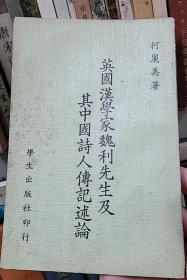 柯麗美著
英國漢學家魏利先生及
其中國詩人傳記述論
學生出版社印行